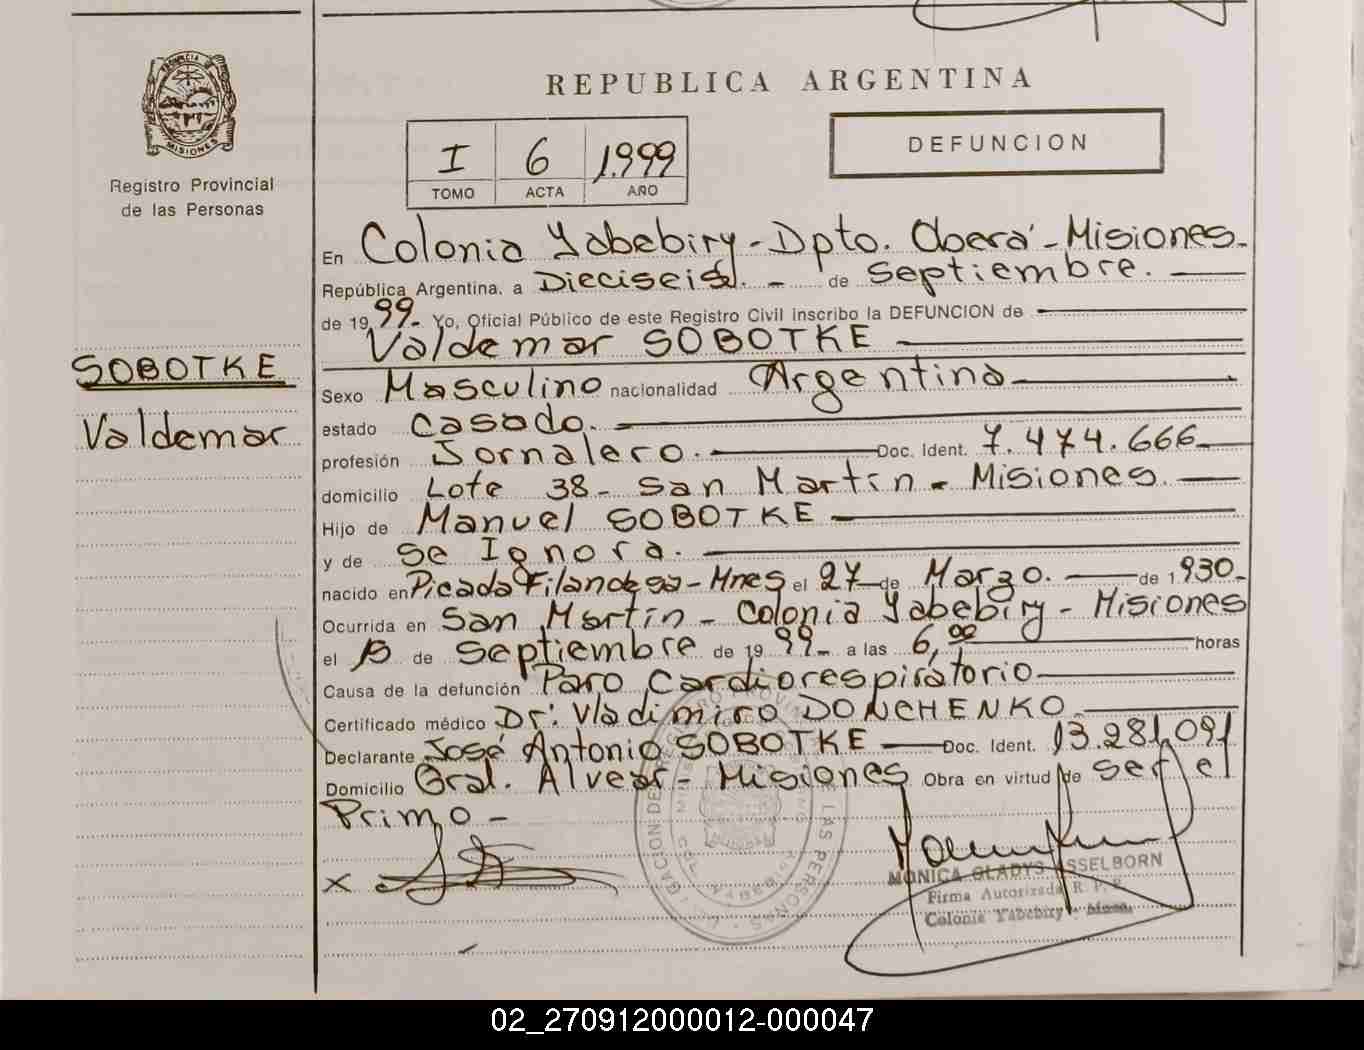 REPUBLICA ARGENTINA
PROVINCIA DE
MISIONES
Registro Provincial
de las Personas
I 6 1.999
TOMO ACTA AÑO
DEFUNCION
SOBOTKE
Valdemar
En Colonia Yabebiry - Dpto. Oberá - Misiones -
República Argentina, a Dieciseis. - de Septiembre.
de 1999 - Yo, Oficial Público de este Registro Civil inscribo la DEFUNCION de
Valdemar SOBOTKE
Sexo Masculino nacionalidad Argentina
estado Casado.
profesión Jornalero. Doc. Ident. 7.474.666
domicilio Lote 38 - San Martín - Misiones.
Hijo de Manuel SOBOTKE
y de Se Ignora.
nacido en Picada Filandesa - Mnes el 27 de Marzo. de 1.930 -
Ocurrida en San Martín - Colonia Yabebiry - Misiones
el de Septiembre de 1999 - a las 6,00 horas
Causa de la defunción Paro Cardiorespiratorio
Certificado médico Dr. Vladimiro DONCHENKO
Declarante José Antonio SOBOTKE Doc. Ident. 13.281.091
Domicilio Gral. Alvear - Misiones Obra en virtud de ser el
Primo -
X
MONICA GLADYS ASSELBORN
Firma Autorizada R. P. P.
Colonia Yabebiry - Mnes.
02_270912000012-000047